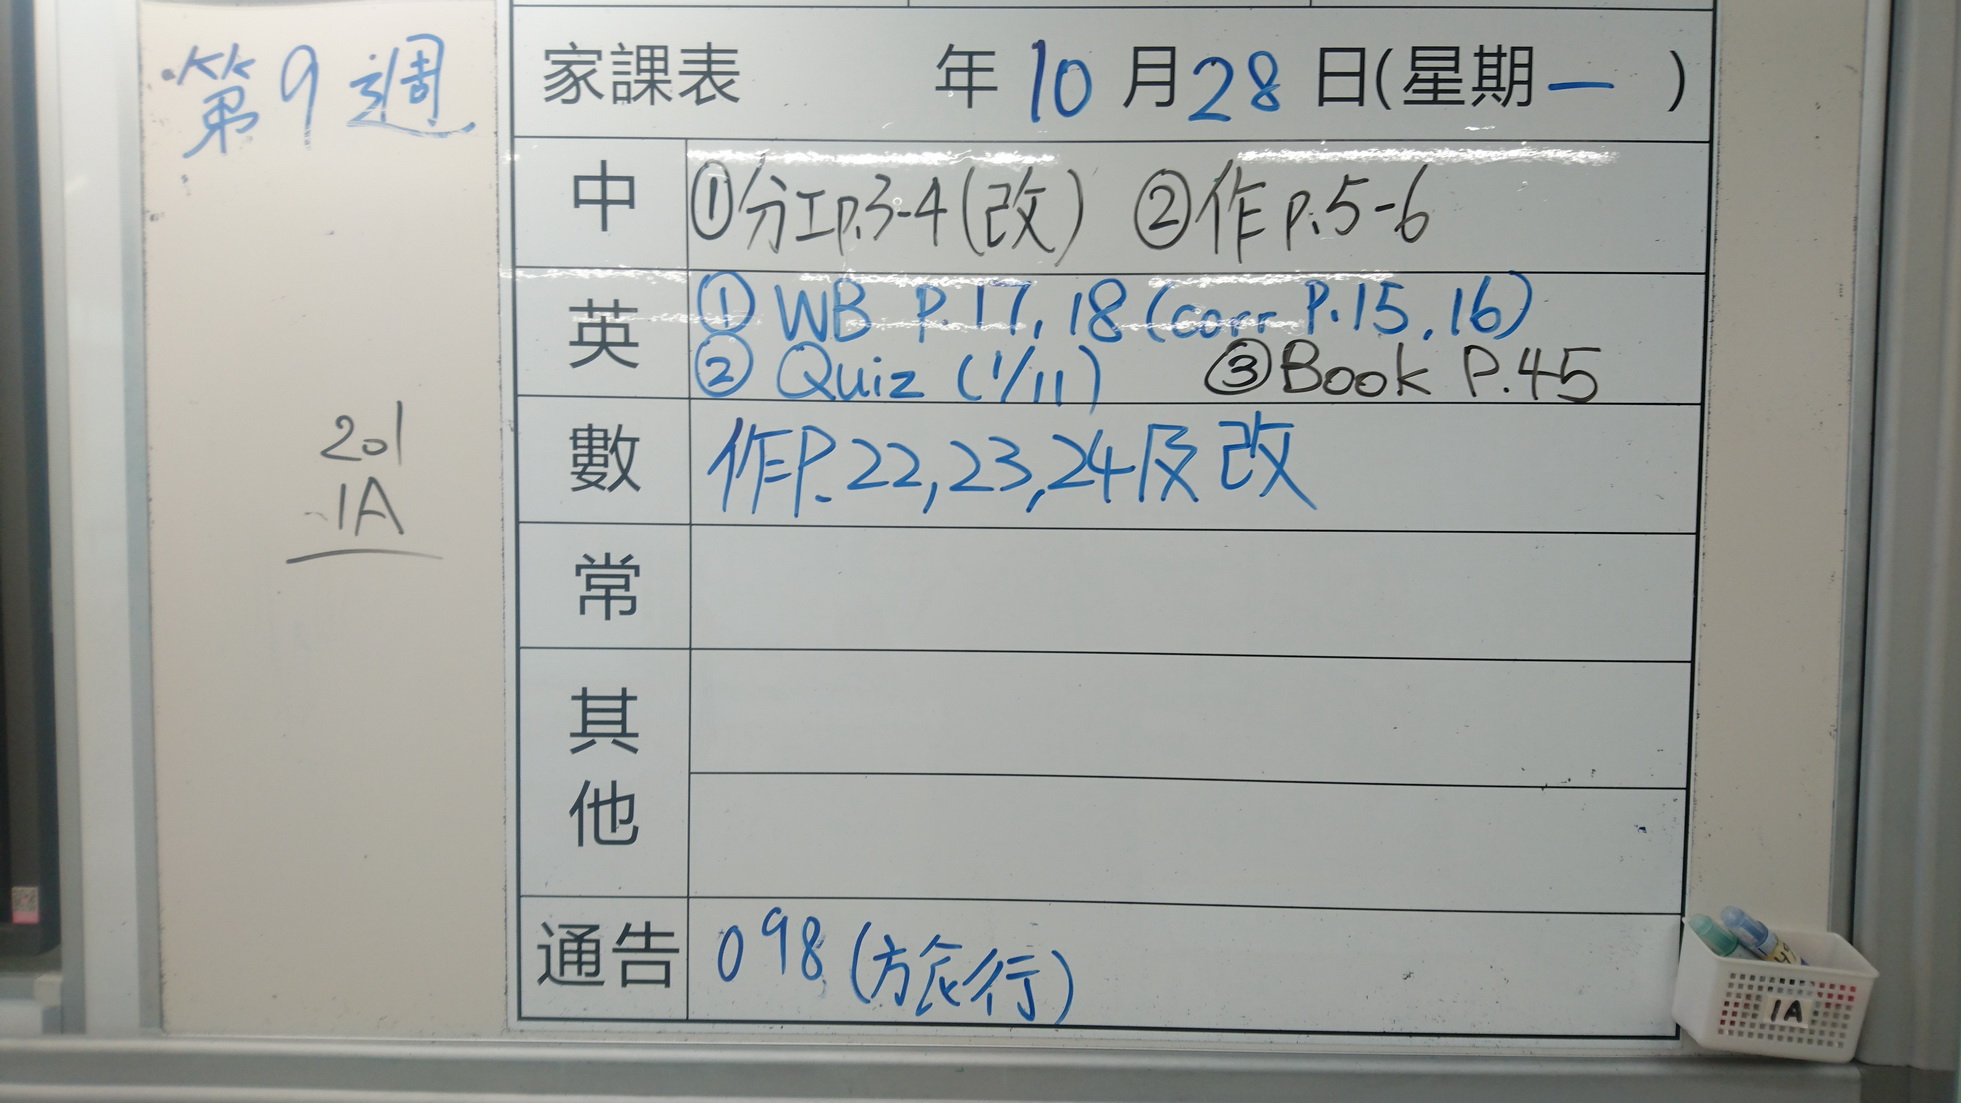 第9週
201
1A
家課表 年 10 月 28 日(星期一 )
中 ①分工p.3-4(改) ②作 p.5-6
英 ① WB P.17, 18 (corr P.15, 16)
② Quiz (1/11) ③Book P.45
數 作P.22,23,24及改
常
其他
通告 098 (旅行)
1A